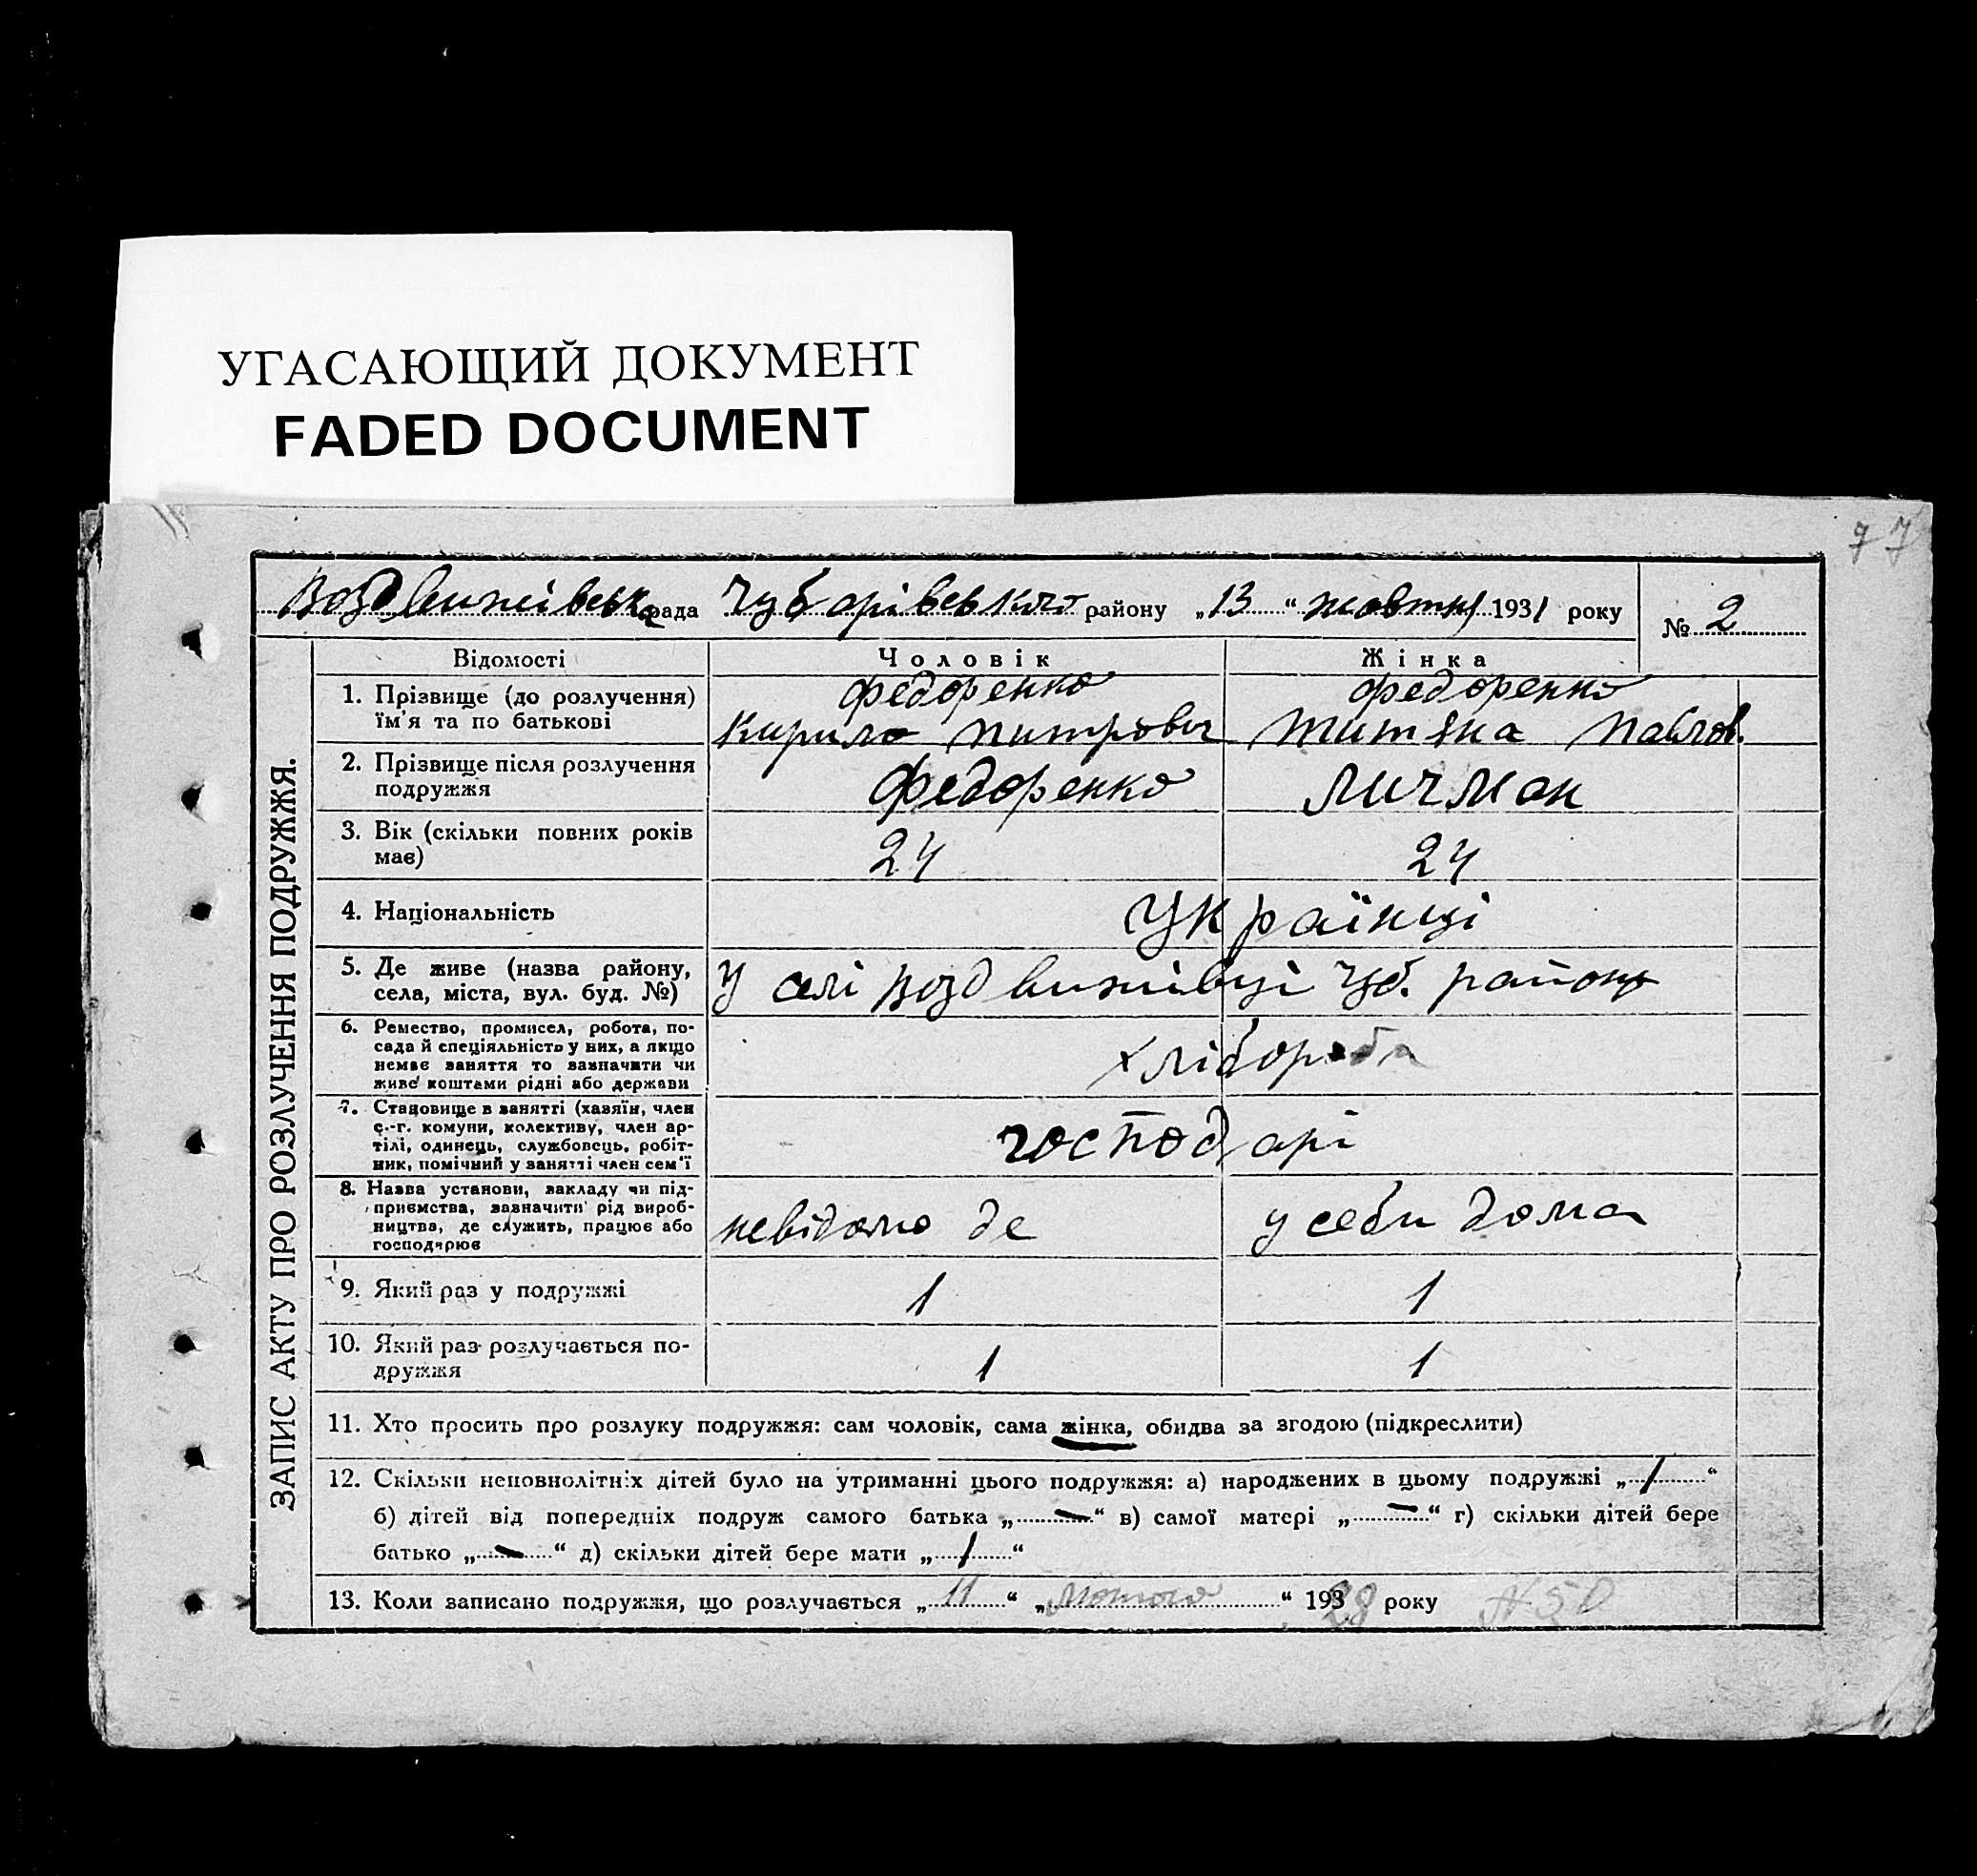 УГАСАЮЩИЙ ДОКУМЕНТ
FADED DOCUMENT
77
Воздвижівська рада Чубарівського району „13“ жовтня 1931 року № 2
ЗАПИС АКТУ ПРО РОЗЛУЧЕННЯ ПОДРУЖЖЯ.
Відомості Чоловік Жінка
1. Прізвище (до розлучення) їм'я та по батькові
Федоренко Федоренко
Кирило Питрович Титяна Павлов.
2. Прізвище після розлучення
подружжя
Федоренко Личман
3. Вік (скільки повних років
має)
24 24
4. Національність Українці
5. Де живе (назва району,
села, міста, вул. буд. №)
У селі Воздвижівці Чуб. району
6. Ремество, промисел, робота, по-
сада й спеціяльність у них, а якщо
немає заняття то зазначити чи
живе коштами рідні або держави
хлібороба
7. Становище в занятті (хазяїн, член
с.-г. комуни, колективу, член ар-
тілі, одинець, службовець, робіт-
ник, помічний у занятті член сем'ї
господарі
8. Назва установи, закладу чи під-
приємства, зазначити рід вироб-
ництва, де служить, працює або
господарює
невідомо де у себи дома
9. Який раз у подружжі 1 1
10. Який раз розлучається по-
дружжя
1 1
11. Хто просить про розлуку подружжя: сам чоловік, сама жінка, обидва за згодою (підкреслити)
12. Скільки неповнолітніх дітей було на утриманні цього подружжя: а) народжених в цьому подружжі „1“
б) дітей від попередніх подруж самого батька „—“ в) самої матері „—“ г) скільки дітей бере
батько „—“ д) скільки дітей бере мати „1“
13. Коли записано подружжя, що розлучається „11“ „лютого“ 1928 року №50